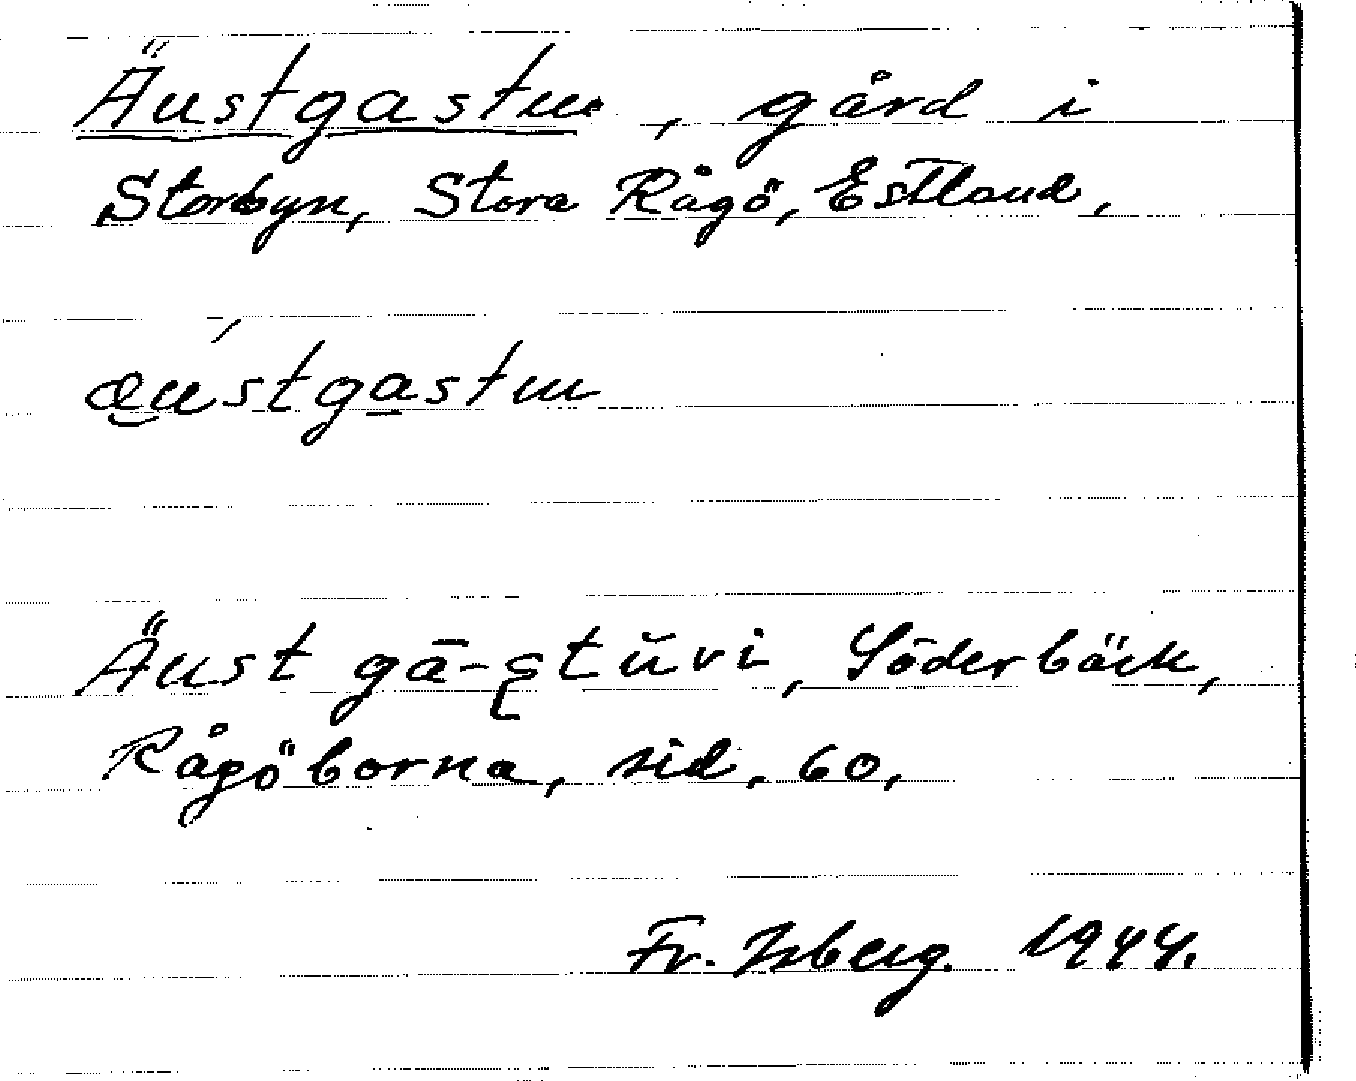 Äustgastu, gård i
Storbyn, Stora Rågö, Estland,
æustgastu
Äust gā-stŭvi, Söderbäck,
Rågöborna, sid. 60.
Fr. Isberg. 1944.